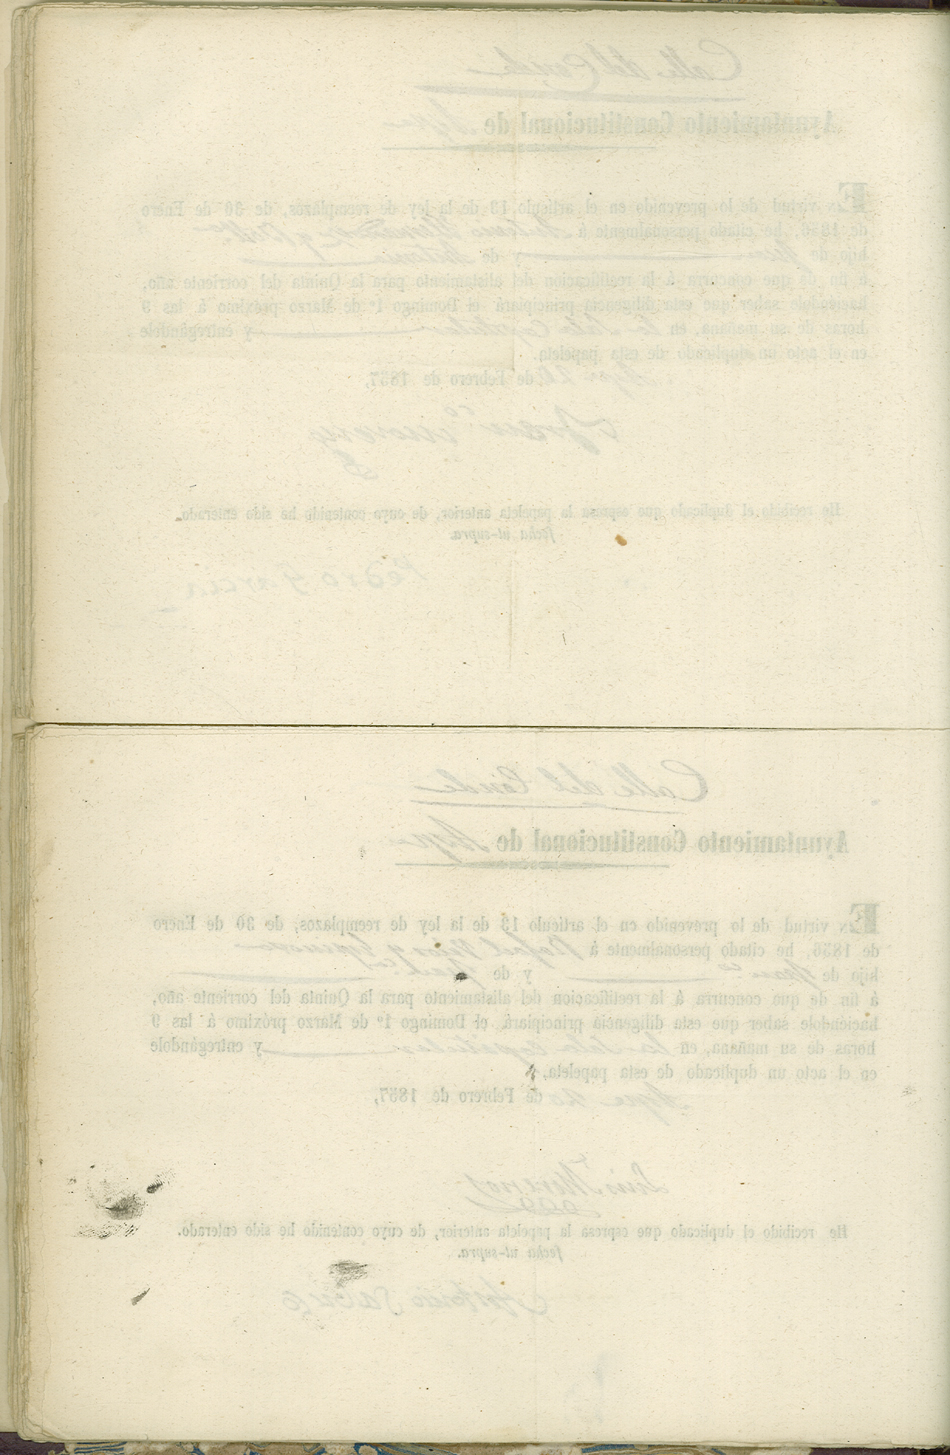 Calle del Conde
Ayuntamiento Constitucional de
En virtud de lo prevenido en el artículo 13 de la ley de reemplazos, de 30 de Enero
de 1856, he citado personalmente á Antonio
hijo de y de Antonia
á fin de que concurra á la rectificacion del alistamiento para la Quinta del corriente año,
haciéndole saber que esta diligencia principiará el Domingo 1º de Marzo próximo á las 9
horas de su mañana, en la Sala Capitular y entregándole
en el acto un duplicado de esta papeleta.
de Febrero de 1857,
He recibido el duplicado que espresa la papeleta anterior, de cuyo contenido he sido enterado.
fecha ut-supra.
Pedro Garcia
Calle del Conde
Ayuntamiento Constitucional de
En virtud de lo prevenido en el artículo 13 de la ley de reemplazos, de 30 de Enero
de 1856, he citado personalmente á Rafael y Espinosa
hijo de Franco y de
á fin de que concurra á la rectificacion del alistamiento para la Quinta del corriente año,
haciéndole saber que esta diligencia principiará el Domingo 1º de Marzo próximo á las 9
horas de su mañana, en la Sala Capitular y entregándole
en el acto un duplicado de esta papeleta.
de Febrero de 1857,
Luis Moreno
He recibido el duplicado que espresa la papeleta anterior, de cuyo contenido he sido enterado.
fecha ut-supra.
Antonio